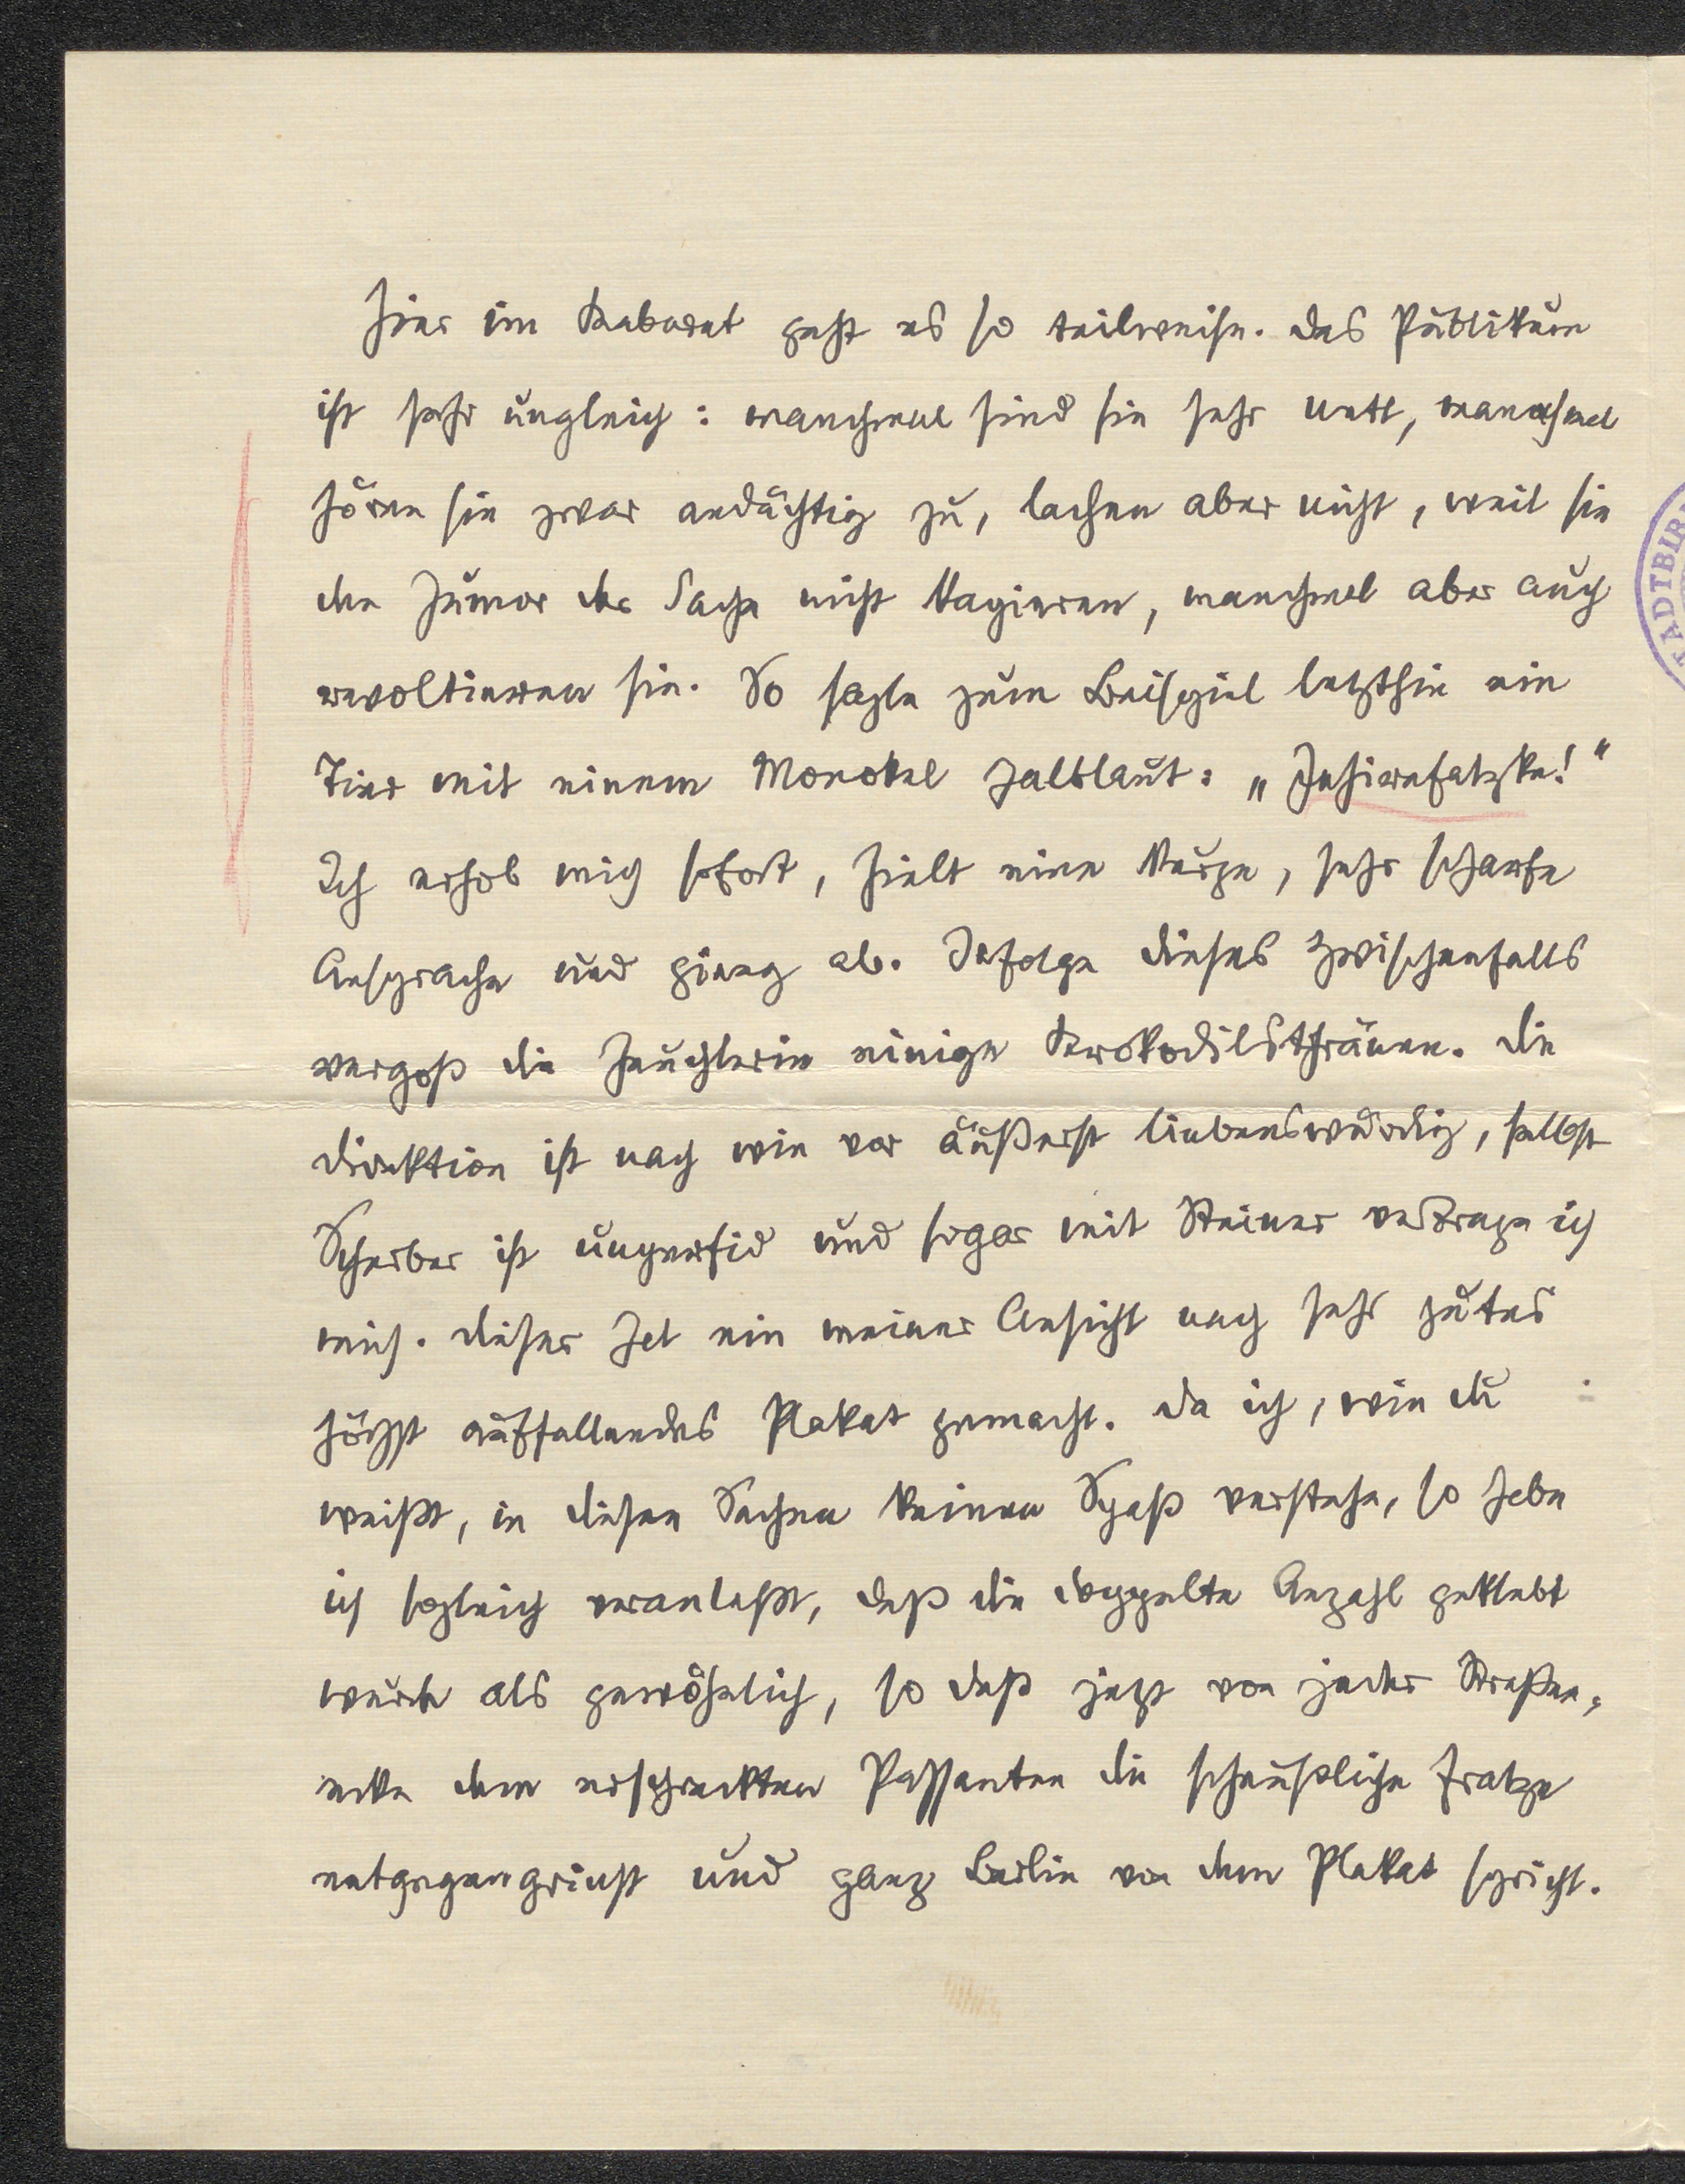 Hier im Kabaret geht es so teilweise. Das Publikum
ist sehr ungleich: manchmal sind sie sehr nett, manchmal
hören sie zwar andächtig zu, lachen aber nicht, weil sie
den Humor der Sache nicht kapieren, manchmal aber auch
revoltieren sie. So sagte zum Beispiel letzthin ein
Tier mit einem Monokel halblaut: „Gehirnfatzke!"
Ich erhob mich sofort, hielt eine kurze, sehr scharfe
Ansprache und gieng ab. Infolge dieses Zwischenfalls
vergoß die Heuchlerin einige Krokodilsthränen. Die
Direktion ist nach wie vor äußerst liebenswürdig, selbst
Scherber ist unperfid und sogar mit Steiner vertrage ich
mich. Dieser hat ein meiner Ansicht nach sehr gutes
höchst auffallendes Plakat gemacht. Da ich, wie du
weißt, in diesen Sachen keinen Spaß verstehe, so habe
ich sogleich veranlaßt, daß die doppelte Anzahl geklebt
wurde als gewöhnlich, so daß jetzt von jeder Straßen-
ecke dem erschreckten Passanten die scheußliche Fratze
entgegengrinst und ganz Berlin von dem Plakat spricht.